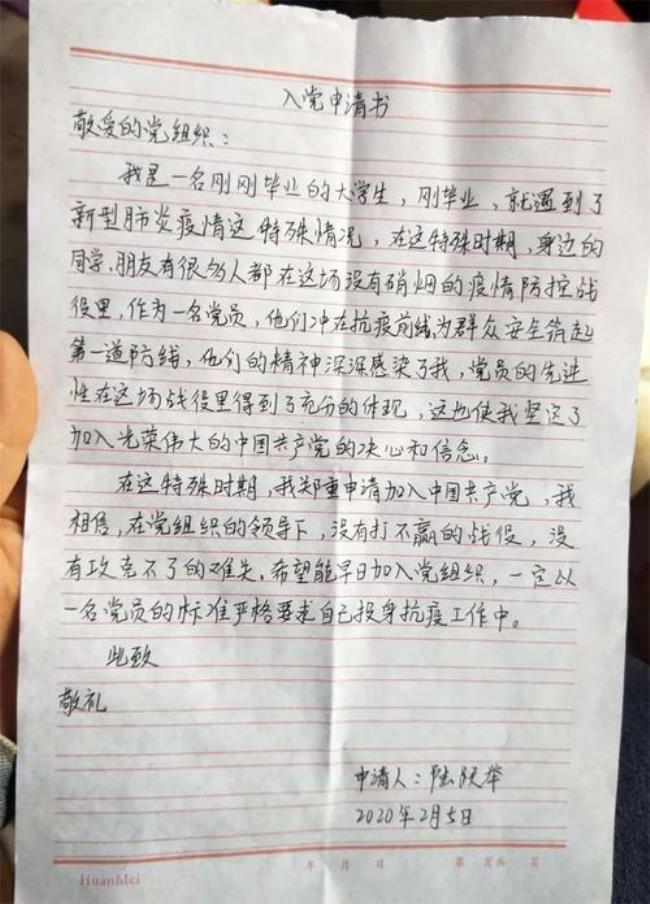 入党申请书
敬爱的党组织：
我是一名刚刚毕业的大学生，刚毕业，就遇到了
新型肺炎疫情这特殊情况，在这特殊时期，身边的
同学、朋友有很多人都在这场没有硝烟的疫情防控战
役里，作为一名党员，他们冲在抗疫前线为群众安全筑起
第一道防线，他们的精神深深感染了我，党员的先进
性在这场战役里得到了充分的体现，这也使我坚定了
加入光荣伟大的中国共产党的决心和信念。
在这特殊时期，我郑重申请加入中国共产党，我
相信，在党组织的领导下，没有打不赢的战役，没
有攻克不了的难关。希望能早日加入党组织，一定以
一名党员的标准严格要求自己投身抗疫工作中。
此致
敬礼
申请人：陆
2020年2月5日
年 月 日 第 页
HuanMei